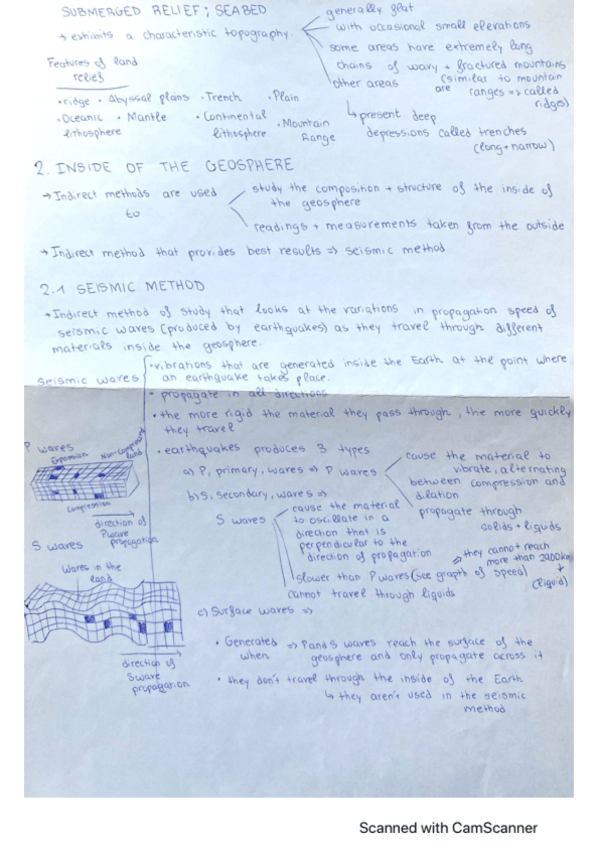 SUBMERGED RELIEF; SEABED
→ exhibits a characteristic topography.
generally flat
with occasional small elevations
some areas have extremely long
chains of wavy + fractured mountains
(similar to mountain
are ranges => called
ridges)
other areas
↳ present deep
depressions called trenches
(long + narrow)
Features of land
relief
• ridge • Abyssal plans • Trench • Plain
• Oceanic lithosphere • Mantle • Continental lithosphere • Mountain Range
2. INSIDE OF THE GEOSPHERE
→ Indirect methods are used
to
study the composition + structure of the inside of
the geosphere
readings + measurements taken from the outside
→ Indirect method that provides best results => seismic method
2.1 SEISMIC METHOD
→ Indirect method of study that looks at the variations in propagation speed of
seismic waves (produced by earthquakes) as they travel through different
materials inside the geosphere.
seismic waves
• vibrations that are generated inside the Earth at the point where
an earthquake takes place.
• propagate in all directions
• the more rigid the material they pass through, the more quickly
they travel
• earthquakes produces 3 types
a) P, primary, waves => P waves
cause the material to
vibrate, alternating
between compression and
dilation
propagate through
solids + liquids
b) S, secondary, waves =>
S waves
cause the material
to oscillate in a
direction that is
perpendicular to the
direction of propagation
slower than P waves (see graph of speed)
cannot travel through liquids
they cannot reach
more than 2900km
(liquid)
c) Surface waves =>
• Generated when => P and S waves reach the surface of the
geosphere and only propagate across it
• they don't travel through the inside of the Earth
↳ they aren't used in the seismic
method
P waves
Expansion
land
Compression
direction of
P wave
propagation
S waves
Waves in the
land
direction of
S wave
propagation
Scanned with CamScanner